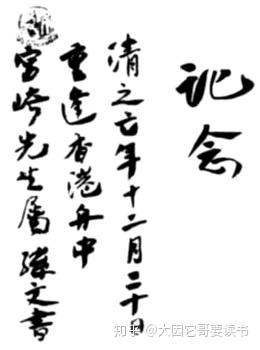 記念
清之亡年十二月二十日
重逢香港舟中
宮崎先生屬 孫文書
知乎 @太因它哥要读书